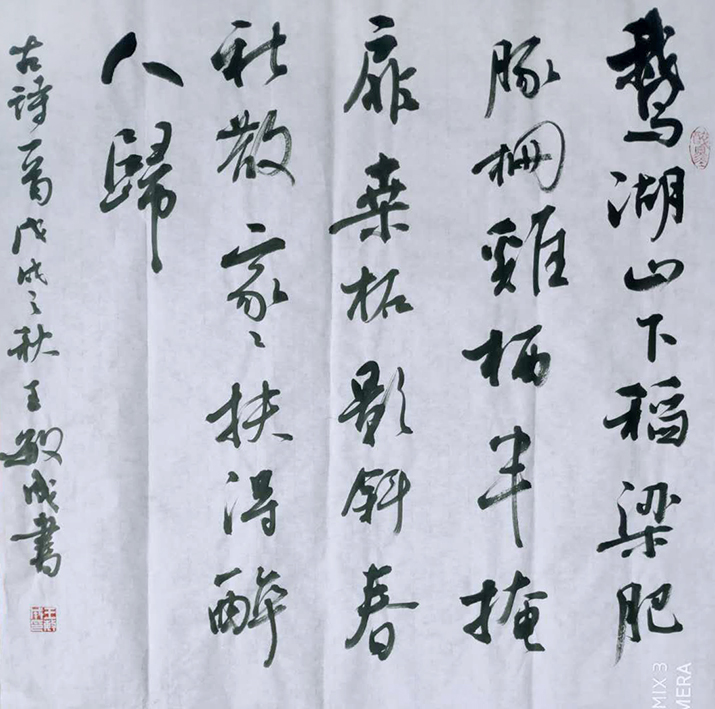 鹅湖山下稻梁肥
豚柵雞栖半掩
扉桑柘影斜春
社散家々扶得醉
人歸
古詩一首戊戌之秋王敏成書
MIX 3
MERA